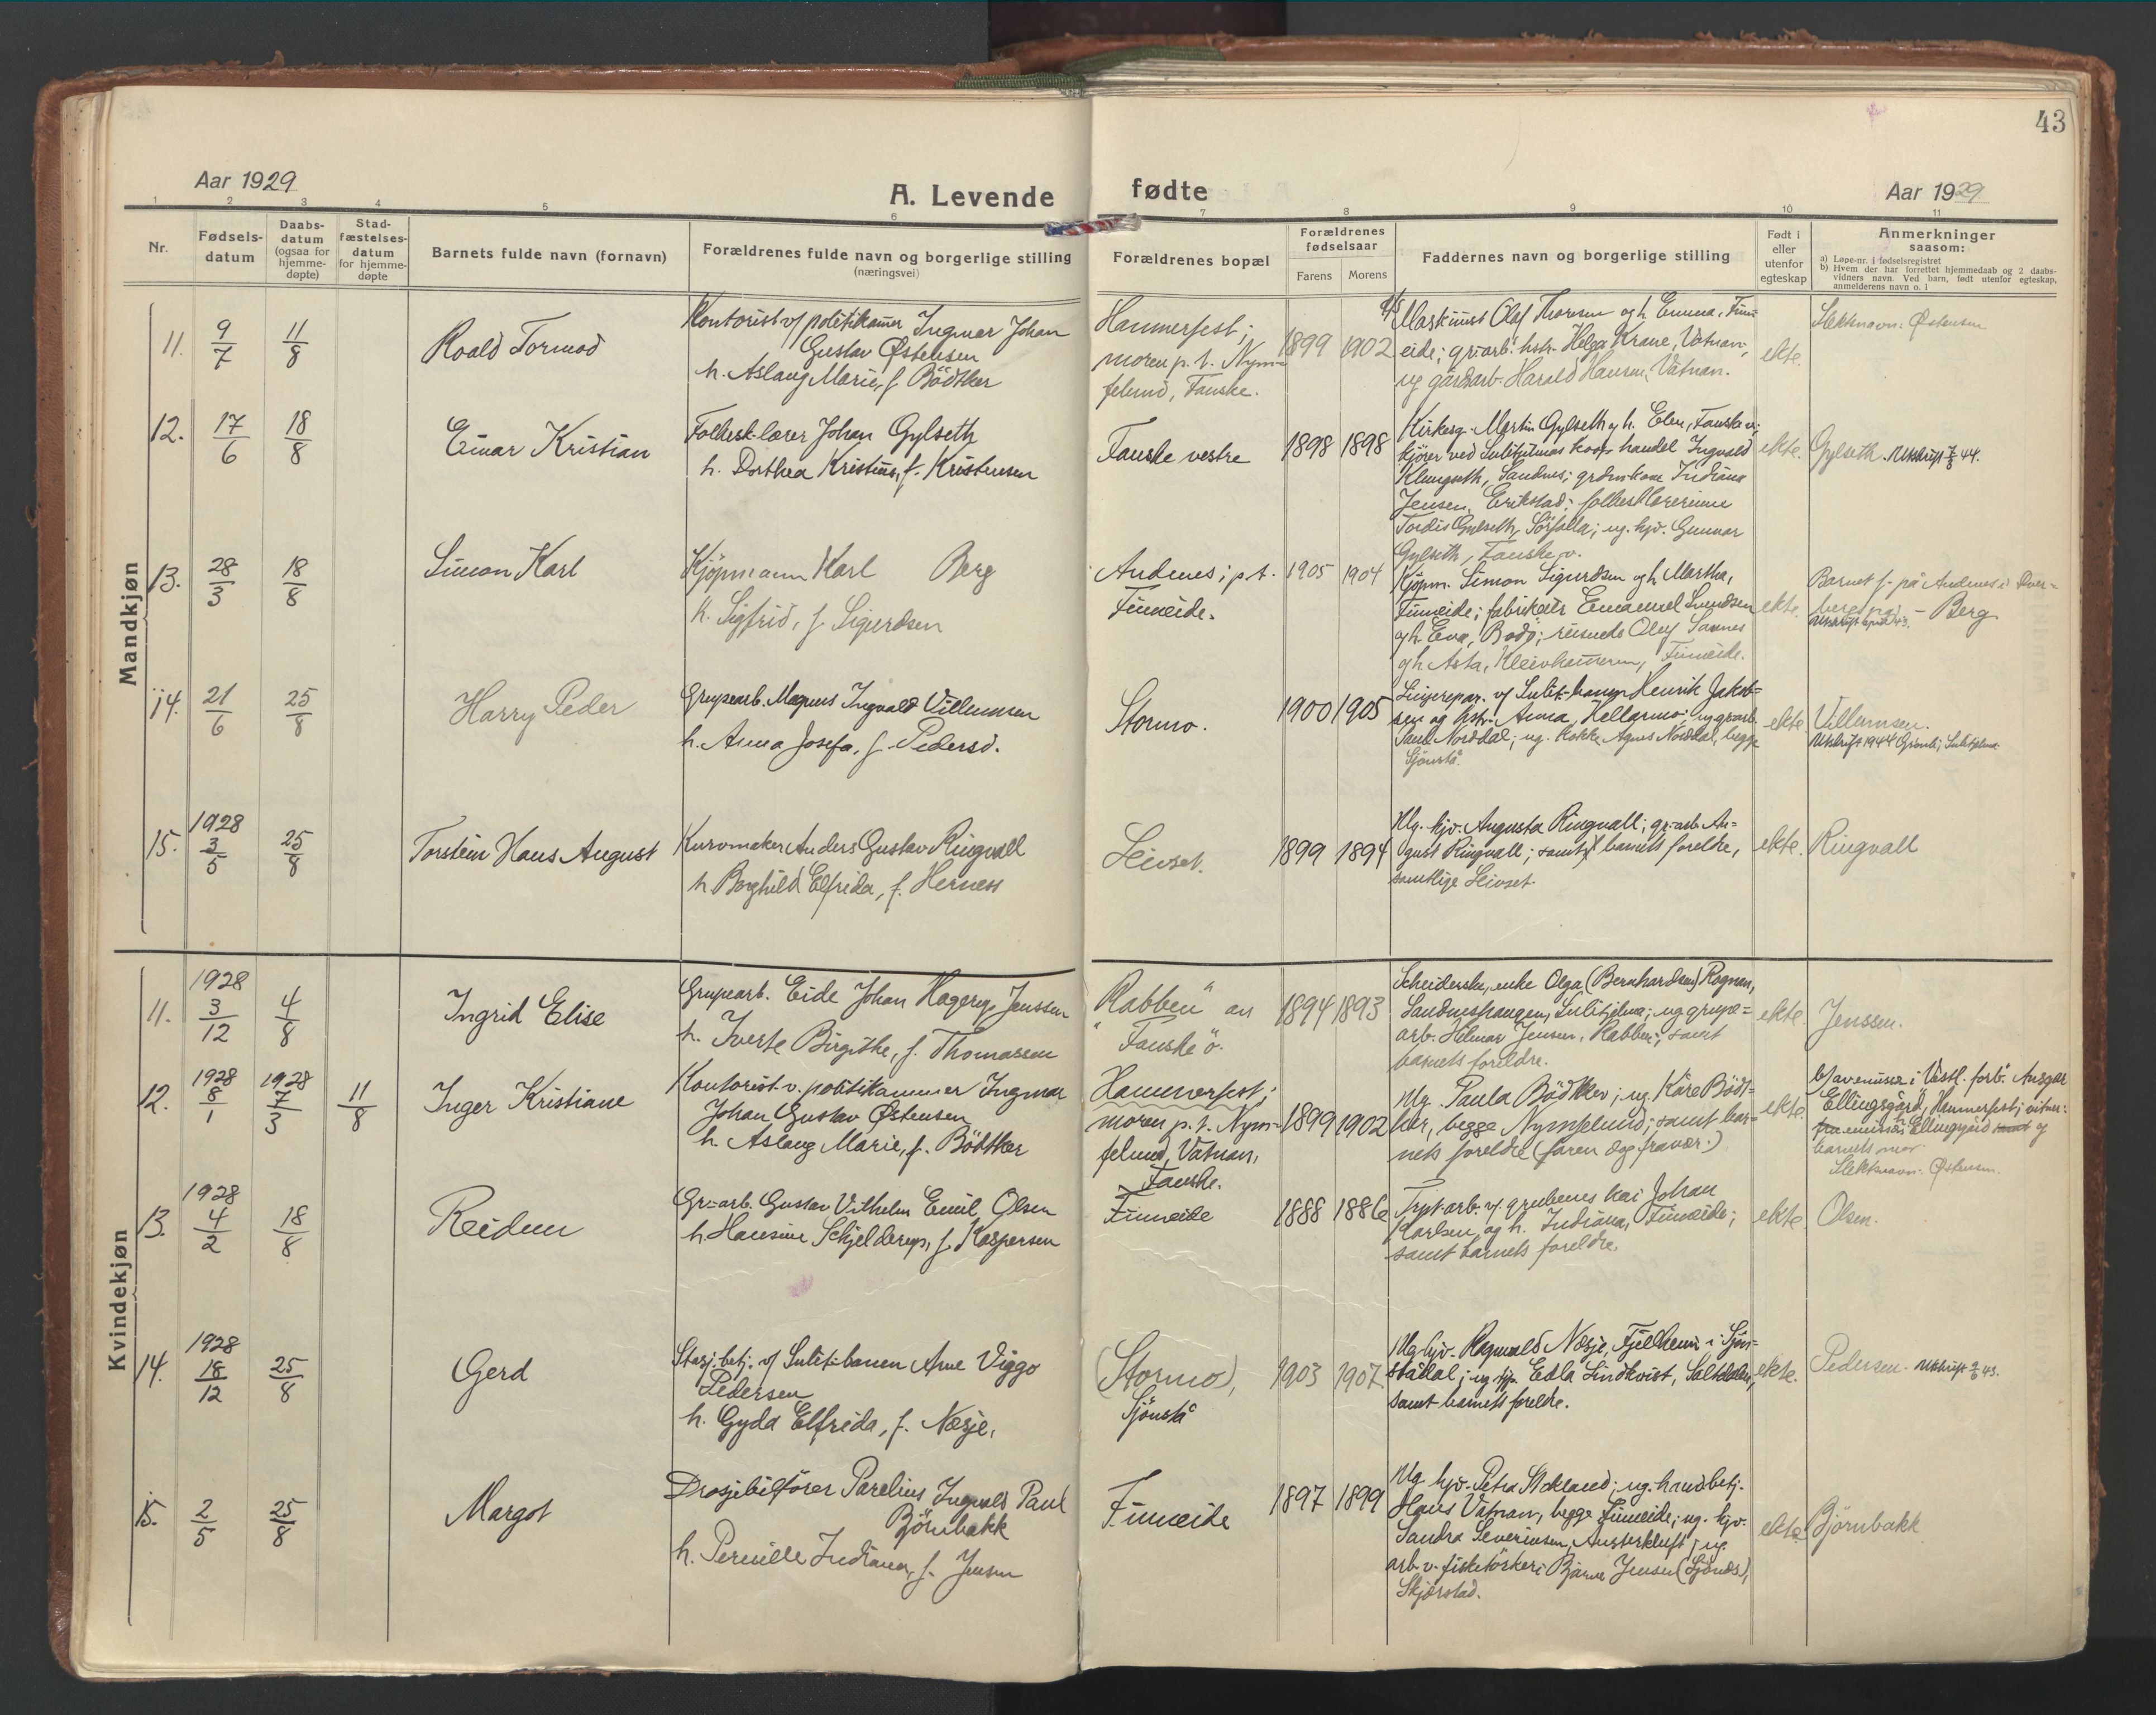 43
Aar 1929
A. Levende fødte
Aar 1929
1 2 3 4 5 6 7 8 9 10 11
Nr.
Fødsels-
datum
Daabs-
datum
(ogsaa for
hjemme-
døpte)
Stad-
fæstelses-
datum
for hjemme-
døpte
Barnets fulde navn (fornavn)
Forældrenes fulde navn og borgerlige stilling
(næringsvei)
Forældrenes bopæl
Forældrenes
fødselsaar
Farens Morens
Faddernes navn og borgerlige stilling
Født i
eller
utenfor
egteskap
Anmerkninger
saasom:
a) Løpe-nr. i fødselsregistret
b) Hvem der har forrettet hjemmedaab og 2 daabs-
vidners navn. Ved barn, født utenfor egteskap,
anmelderens navn o. l
Mandkjøn
11. 9/7 11/8
Roald Tormod
Kontorist v/ politikamer Ingmar Johan
Gustav Østensen
h. Aslaug Marie, f. Bödtker
Hammerfest;
moren p. t. Nym-
felund, Fauske.
1899 1902
Maskinist Olaf Thoresen og h. Emma, Finn-
eide; gr.arb. hstr. Helga Krane, Vatnan;
ug gårdarb. Harald Hansen, Vatnan.
ekte.
Slektsnavn: Østensen
12. 17/6 18/8
Einar Kristian
Folkesk.lærer Johan Gylseth
h. Dorthea Kristine, f. Kristensen
Fauske vestre
1898 1898
Kirkesg. Martin Gylseth og h. Elen, Fauske v.;
kjører ved Sulitjelmas koop. handel Ingvald
Klungseth, Sandnes; grdmkone Indiana
Jensen, Erikstad; folkesklærerinne
Tordis Gylseth, Sörfolla; ug. hjv. Gunnar
Gylseth, Fauske v.
ekte.
Gylseth. Utskrift 7/8 44.
13. 28/3 18/8
Simon Karl
Kjöpmann Karl Berg
h. Sigfrid, f. Sigurdsen
Andenes; p. t.
Finneide.
1905 1904
Kjöpm. Simon Sigurdsen og h. Martha,
Finneide; fabrikeier Emanuel Svendsen
og h. Eva, Bodö; reisende Olaf Sannes
og h. Asta, Kleivhammeren, Finneide.
ekte.
Barnet f. på Andenes i Dver-
berg pgj. – Berg
14. 21/6 25/8
Harry Peder
Grupearb. Magnus Ingvald Villumsen
h. Anna Josefa, f. Pedersd.
Stormo.
1900 1905
Linjerepar. v/ Sulit.banen Henrik Jakob-
sen og hstr. Anna, Hellarmo; ug grarb.
Paul Norddal; ug. kokke Agnes Norddal, begge
Sjönstå.
ekte
Villumsen.
Utskrift 1944 Grönli; Sulitjelma
15. 1928 3/5 25/8
Torstein Hans August
Kurvmaker Anders Gustav Ringvall
h. Borghild Elfrida, f. Herness
Leivset.
1899 1894
Ug. hjv. Augusta Ringvall; gr.arb. Au-
gust Ringvall; samt barnets foreldre,
samtlige Leivset.
ekte.
Ringvall
Kvindekjøn
11. 1928 3/12 4/8
Ingrid Elise
Grupearb. Eide Johan Hagerup Jenssen
h. Iverte Birgithe, f. Thomassen
"Rabben" av
Fauske ö.
1894 1893
Scheiderske, enke Olga (Bernhardsen) Rognan,
Sandneshaugen, Sulitjelma; ug grupe-
arb. Hilmar Jensen, Rabben; samt
barnets foreldre.
ekte.
Jenssen.
12. 1928 8/1 1928 7/3 11/8
Inger Kristiane
Kontorist v. politikammer Ingmar
Johan Gustav Østensen
h. Aslaug Marie, f. Bödtker
Hammerfest;
moren p. t. Nym-
felund, Vatnan,
Fauske.
1899 1902
Ug. Paula Bödtker; ug. Kåre Bödt-
ker, begge Nymfelund; samt bar-
nets foreldre (faren dog fravær.)
ekte.
b/ av emissær i Vestl. forb. Ansgar
Ellingsgård, Hammerfest; vitner:
emissær Ellingsgård samt og
barnets mor
Slektsnavn: Østensen.
13. 1928 4/2 18/8
Reidun
Gr.arb. Gustav Vilhelm Emil Olsen
h. Hansine Schjelderup, f. Kaspersen
Finneide
1888 1886
Trptarb. v. grubenes kai Johan
Karlsen og h. Indiana, Finneide;
samt barnets foreldre.
ekte
Olsen.
14. 1928 18/12 25/8
Gerd
Stasj.betj. v/ Sulit.banen Arne Viggo
Pedersen
h. Gyda Elfrida, f. Næsje,
(Stormo),
Sjönstå
1903 1907
Ug hjv. Ragnvald Næsje, Fjellheim i Sjön-
stådal; ug tjp. Edla Lindkvist, Saltdalen;
samt barnets foreldre.
ekte.
Pedersen. Utskrift 2/6 43.
15. 2/5 25/8
Margot
Drosjebilförer Parelius Ingvald Paul
Björnbakk
h. Pernille Indiana, f. Jensen
Finneide
1897 1899
Ug. hjv. Petra Stokland; ug. handbetj.
Hans Vatnan, begge Finneide; ug. hjv.
Sandra Severinsen, Austerkluft; ug.
arb. v. fisketörkeri Bjarne Jensen (Löndes),
Skjerstad.
ekte
Bjørnbakk